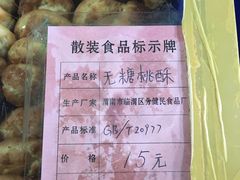 散装食品标示牌
产品名称 无糖桃酥
生产厂家 渭南市临渭区务健民食品厂
产品标准 GB/T20977
价格 15元